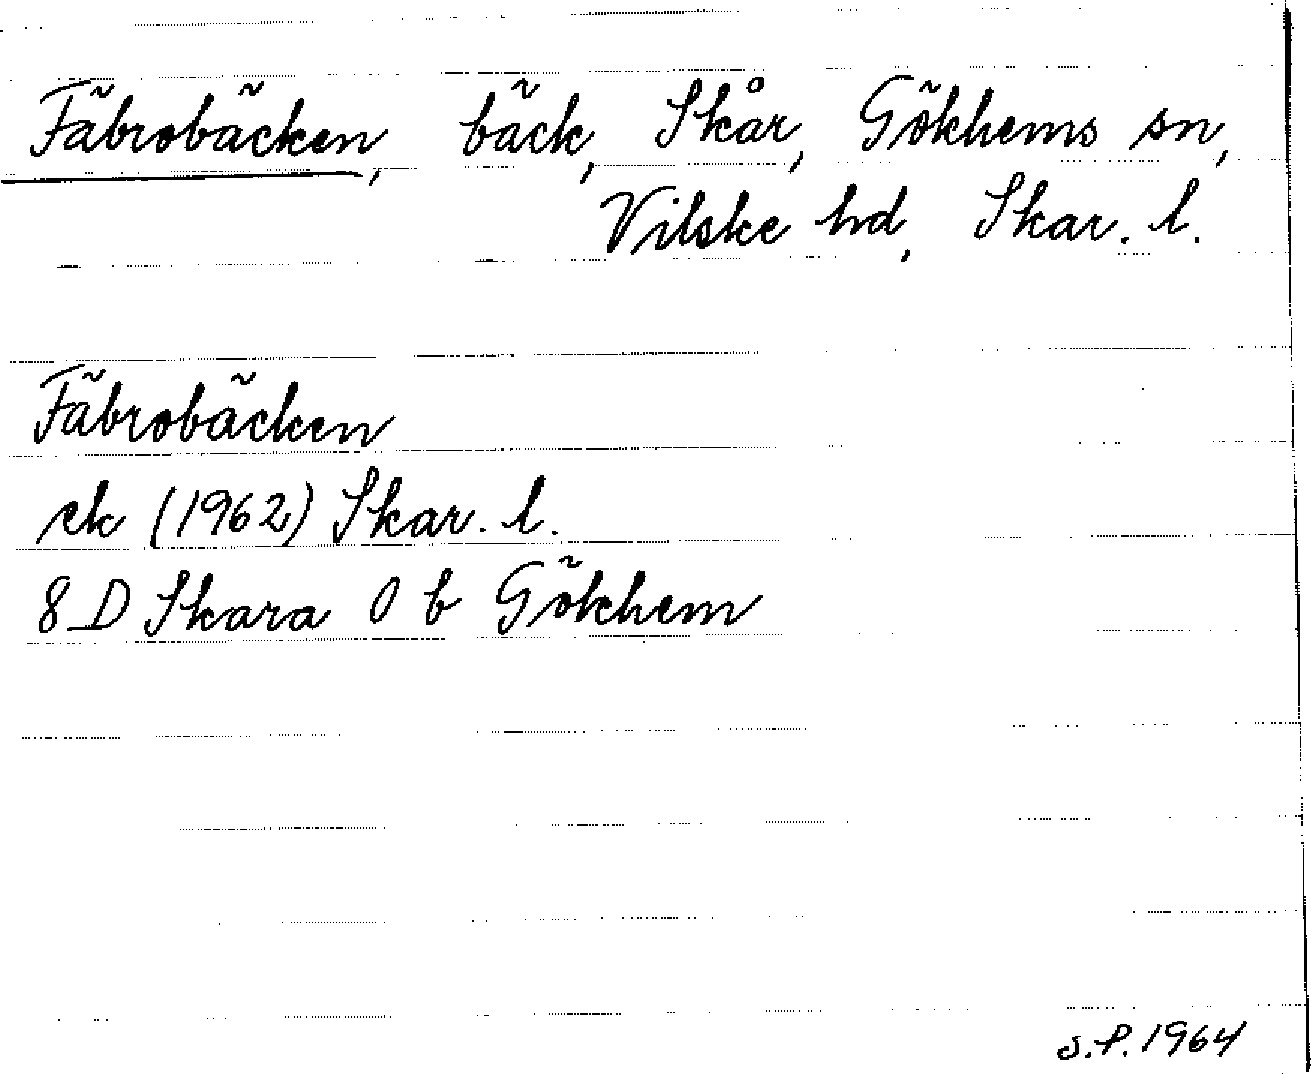 Fäbrobäcken, bäck, Skår, Gökhems sn,
Vilske hd, Skar. l.
Fäbrobäcken
ek (1962) Skar. l.
8 D Skara 0 b Gökhem
S.P. 1964